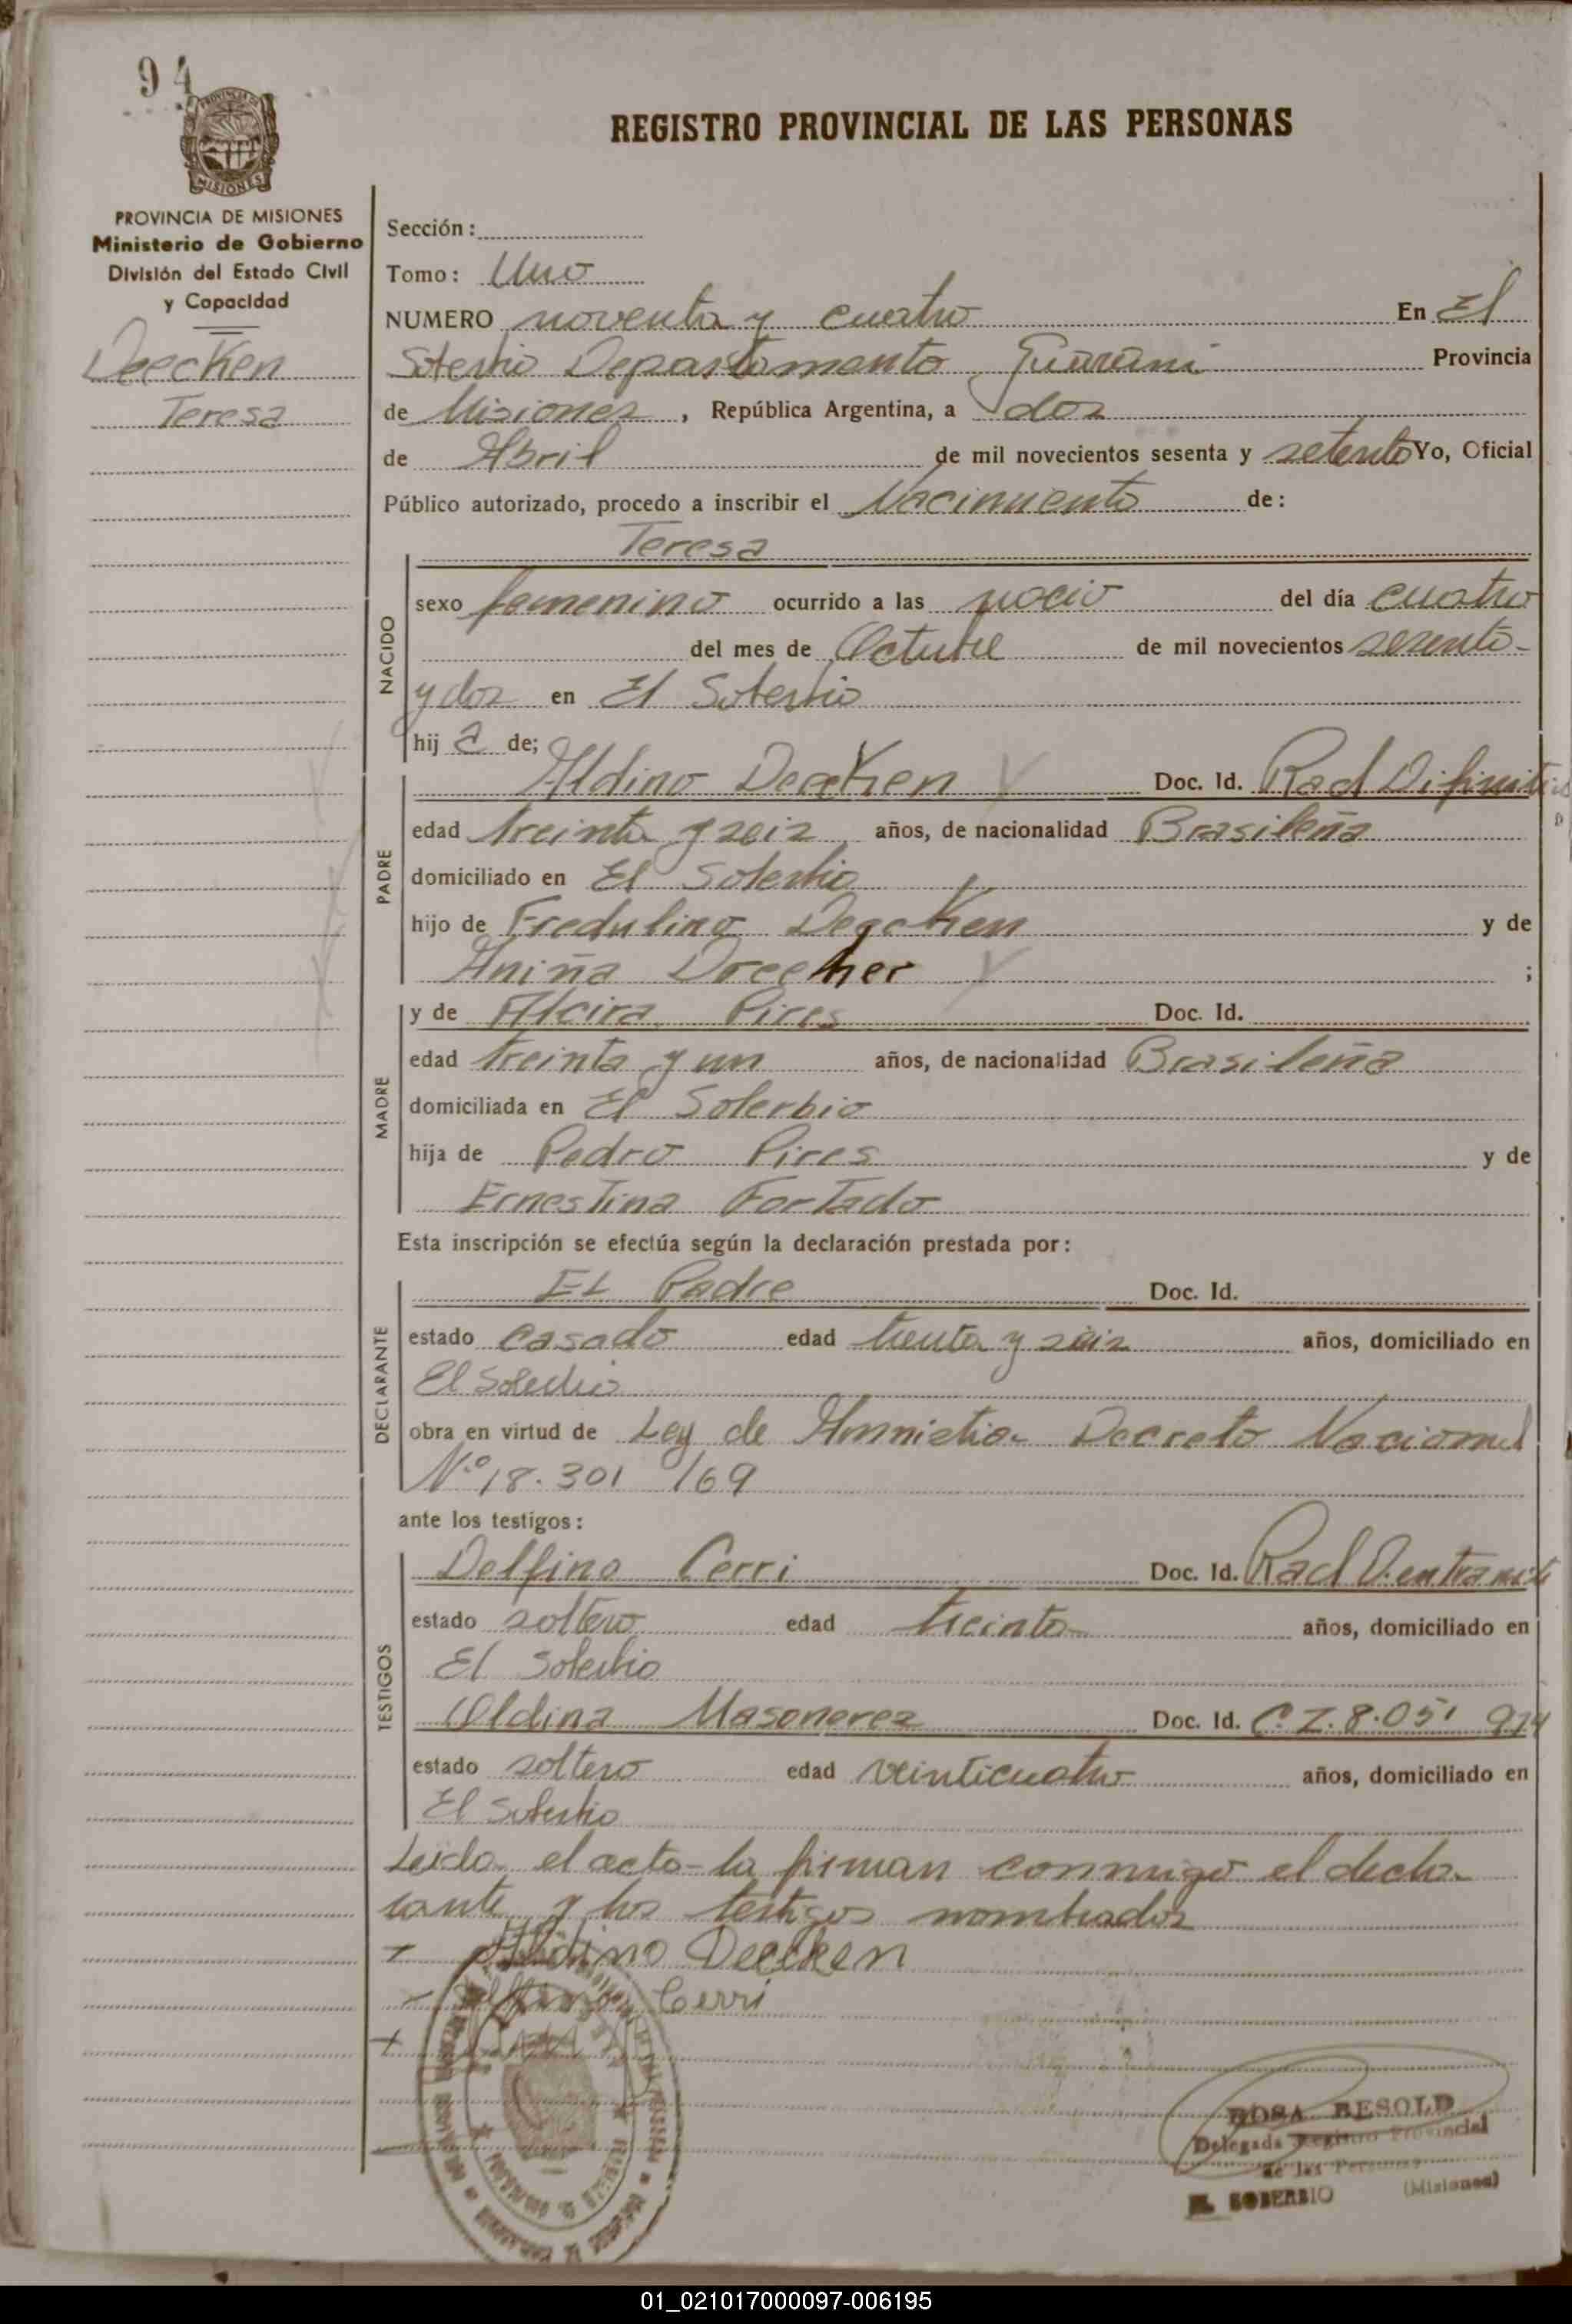 94
PROVINCIA DE MISIONES
Ministerio de Gobierno
División del Estado Civil
y Capacidad
Deecken
Teresa
REGISTRO PROVINCIAL DE LAS PERSONAS
Sección:
Tomo: Uno
NUMERO noventa y cuatro En El
Soterbio Departamento Guarani Provincia
de Misiones, República Argentina, a dos
de Abril de mil novecientos sesenta y setenta Yo, Oficial
Público autorizado, procedo a inscribir el Nacimiento de:
Teresa
NACIDO
sexo femenino ocurrido a las del día cuatro
del mes de Octubre de mil novecientos sesenta
y dos en El Soterbio
hij a de;
PADRE
Aldino Deecken Doc. Id. Rad Difinitiva
edad treinta y seis años, de nacionalidad Brasileña
domiciliado en El Soterbio
hijo de Fredulino Deecken y de
Aniña Dreher ;
MADRE
y de Alcira Pires Doc. Id.
edad treinta y un años, de nacionalidad Brasileña
domiciliada en El Soterbio
hija de Pedro Pires y de
Ernestina Fortado
Esta inscripción se efectúa según la declaración prestada por:
DECLARANTE
El Padre Doc. Id.
estado casado edad treinta y seis años, domiciliado en
El Soterbio
obra en virtud de Ley de Amnistia Decreto Nacional
Nº 18.301 /69
ante los testigos:
TESTIGOS
Delfino Cerri Doc. Id. Rad D. en tramite
estado soltero edad treinta años, domiciliado en
El Soterbio
Oldina Masonerez Doc. Id. C.I. 8.051 974
estado soltero edad veinticuatro años, domiciliado en
El Soterbio
Leida el acta la firman conmigo el decla-
rante y los testigos nombrados
Aldino Deecken
Delfino Cerri
ROSA BESOLD
Delegada Registro Provincial
de las Personas
EL SOBERBIO (Misiones)
01_021017000097-006195